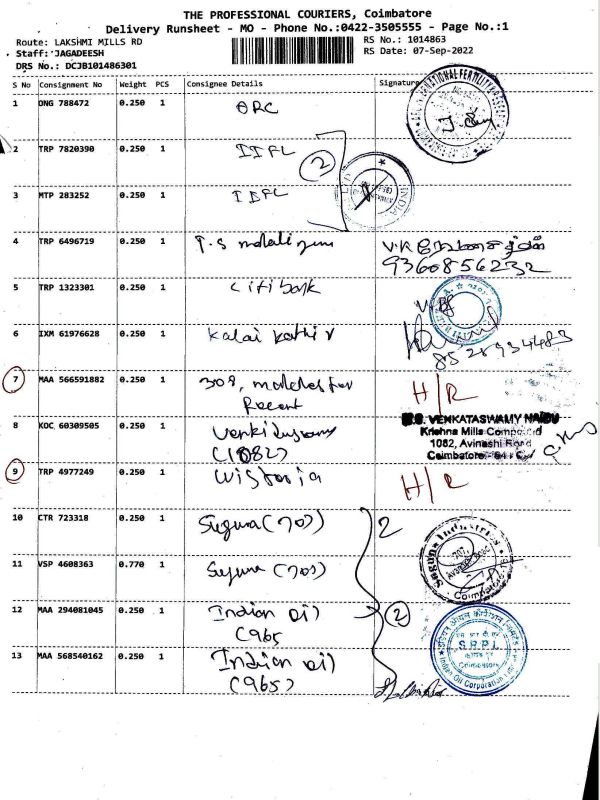 THE PROFESSIONAL COURIERS, Coimbatore
Delivery Runsheet - MO - Phone No.:0422-3505555 - Page No.:1
Route: LAKSHMI MILLS RD
RS No.: 1014863
Staff:'JAGADEESH
RS Date: 07-Sep-2022
DRS No.: DCJB101486301
S No Consignment No Weight PCS Consignee Details Signature
1 ONG 788472 0.250 1 ORC
2 TRP 7820390 0.250 1 IIFL
2
3 MTP 283252 0.250 1 IIFL
4 TRP 6496719 0.250 1
9360856232
5 TRP 1323301 0.250 1 Citibank
6 IXM 61976628 0.250 1 Kalai Kathir
8528934483
7 MAA 566591882 0.250 1 308,
H/R
8 KOC 60309505 0.250 1
(1082)
VENKATASWAMY NAIDU
Krishna Mills Compound
1082, Avinashi Road
Coimbatore
9 TRP 4977249 0.250 1 Wistoria
H/R
10 CTR 723318 0.250 1 Suguna (707)
2
11 VSP 4608363 0.770 1 Suguna (707)
Suguna Industries
707,
Avinashi Road
Coimbatore-18
12 MAA 294081045 0.250 1 Indian Oil
(965
2
13 MAA 568540162 0.250 1 Indian Oil
(965)
S.R.P.L.
Coimbatore
Indian Oil Corporation